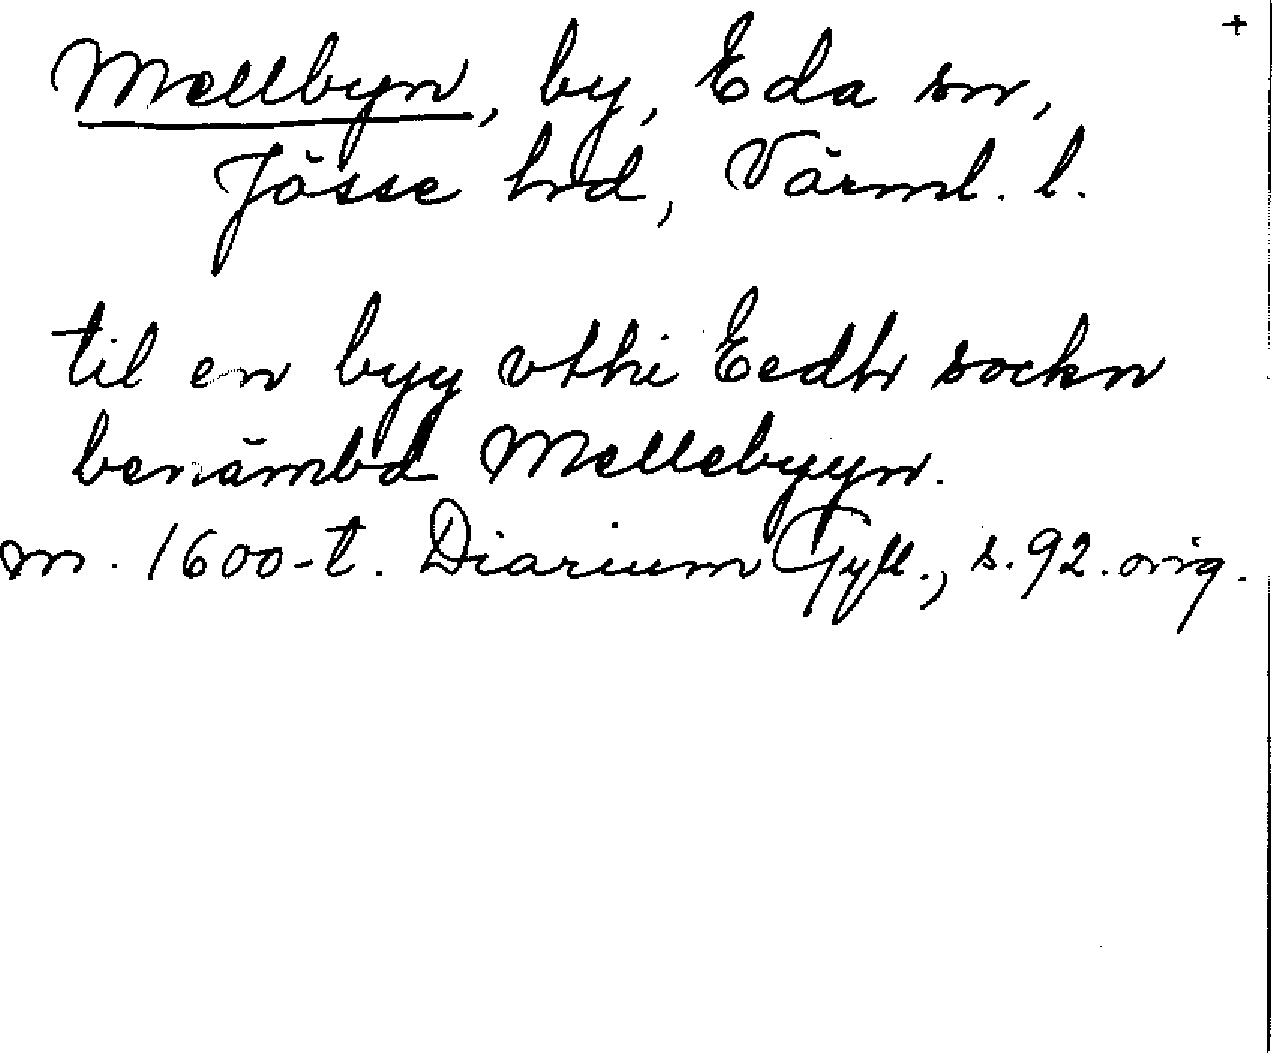 +
Mellbyn, by, Eda sn,
Jösse hd, Värml. l.
til en byy vthi Eedh sockn
benämbd Mellebyyn.
m. 1600-t. Diarium Gyll., s. 92. orig.